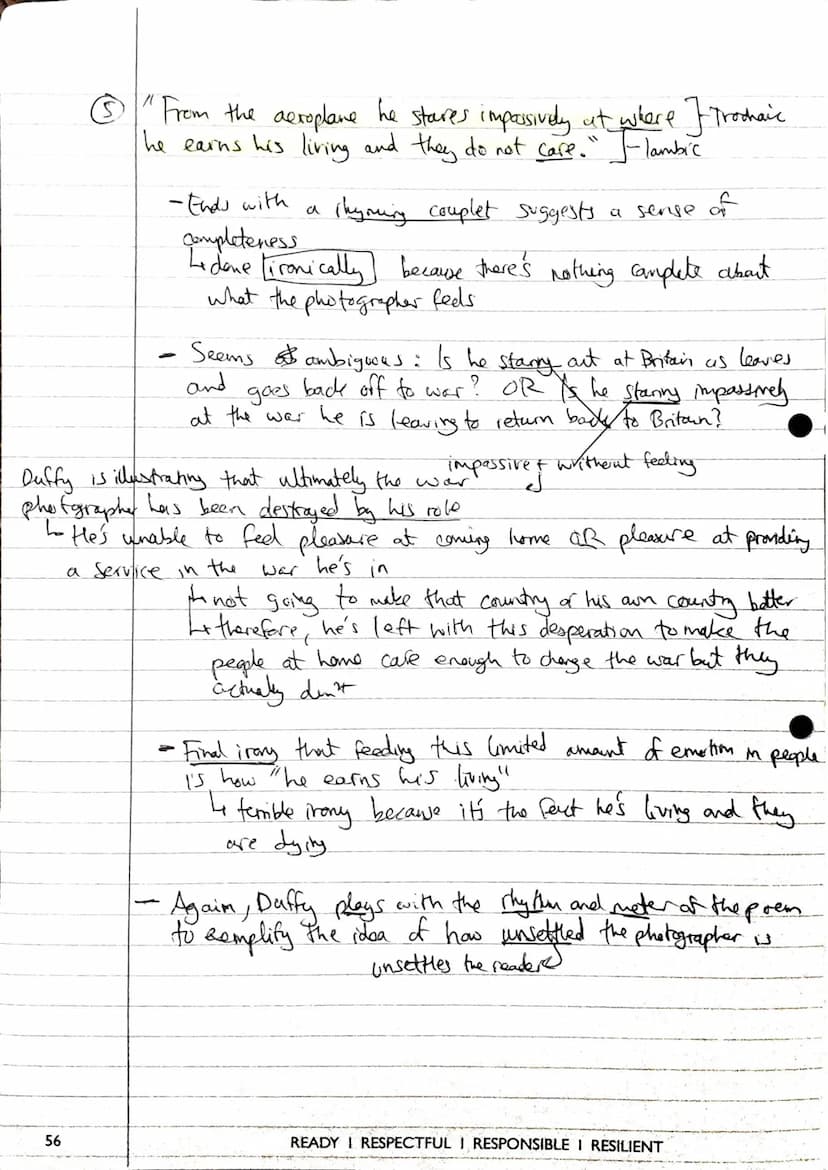 ⑤ "From the aeroplane he stares impassively at where ]- Trochaic
he earns his living and they do not care." ]- Iambic
- Ends with a rhyming couplet suggests a sense of
completeness
↳ done ironically because there's nothing complete about
what the photographer feels
- Seems ambiguous: Is he staring out at Britain as leaves
and goes back off to war? OR Is he staring impassively
at the war he is leaving to return back to Britain?
impassive = without feeling
Duffy is illustrating that ultimately the war
photographer has been destroyed by his role
↳ He's unable to feel pleasure at coming home OR pleasure at providing
a service in the war he's in
↳ not going to make that country or his own country better
↳ therefore, he's left with this desperation to make the
people at home care enough to change the war but they
actually don't
- Final irony that feeding this limited amount of emotion in people
is how "he earns his living"
↳ terrible irony because it's the fact he's living and they
are dying
- Again, Duffy plays with the rhythm and meter of the poem
to exemplify the idea of how unsettled the photographer is
unsettles the reader
56 READY I RESPECTFUL I RESPONSIBLE I RESILIENT